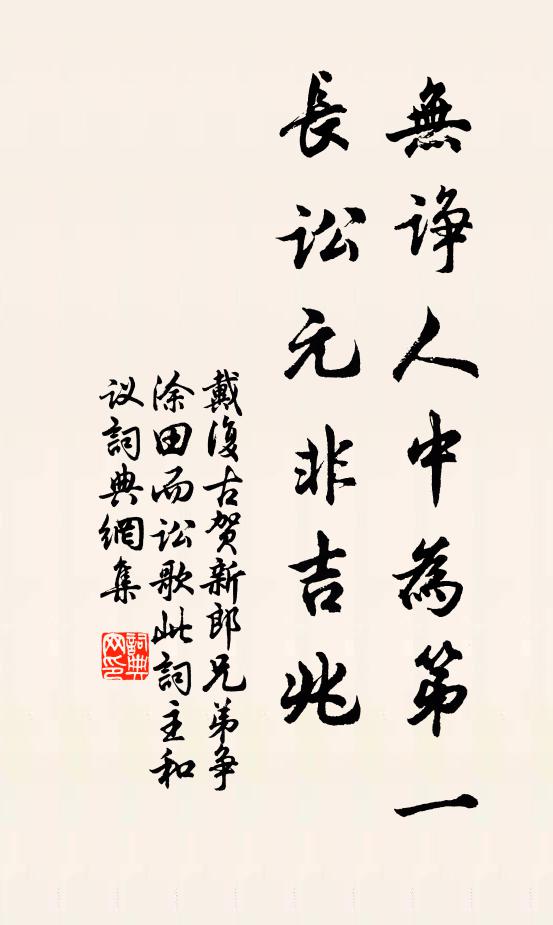 無諍人中為第一
長訟元非吉兆
戴復古賀新郎兄弟争
涂田而訟歌此詞主和
议詞典網集
詞典
网印